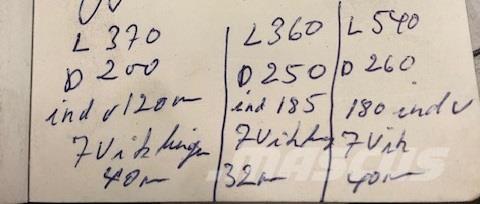 L 370 L360 L 540
D 200 D 250 D 260
ind v 120m ind 185 180 indv
7 Viklinger 7Vikling 7Vik
40m 32m 40m
MASCUS